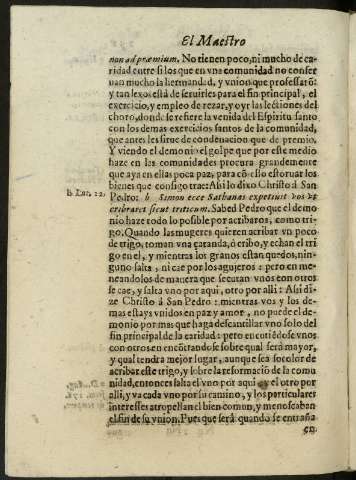 El Maestro
non ad præmium. No tienen poco, ni mucho de ca-
ridad entre si los que en vna comunidad no conser
uan mucho la hermandad, y vnion que professarõ:
y tan lexos está de seruirles para el fin principal, el
exercicio, y empleo de rezar, y oyr las lectiones del
choro, donde se refiere la venida del Espiritu santo
con los demas exercicios santos de la comunidad,
que antes les sirue de condenacion que de premio.
Y viendo el demonio el golpe que por este medio
haze en las comunidades procura grandemente
que aya en ellas poca paz, para cõ esso estoruar los
bienes que consigo trae: Assi lo dixo Christo à San
b Luc. 22.
Pedro: b Simon ecce Sathanas expetiuit vos vt
cribraret sicut triticum. Sabed Pedro que el demo-
nio haze todo lo posible por acribaros, como tri-
go. Quando las mugeres quieren acribar vn poco
de trigo, toman vna çaranda, ò cribo, y echan el tri
go en el, y mientras los granos estan quedos, nin-
guno salta, ni cae por los agujeros: pero en me-
neandolos de manera que secutan vnos con otros
se cae, y salta vno por aqui, otro por alli: Assi di-
ze Christo â San Pedro: mientras vos y los de-
mas estays vnidos en paz y amor, no puede el de-
monio por mas que haga descantillar vno solo del
fin principal de la caridad: pero en cutiẽdose vnos
con otros en encõtrandose sobre qual será mayor,
y qual tendra mejor lugar, aunque sea so color de
acribar este trigo, y sobre la reformaciõ de la comu
nidad, entonces salta el vno por aqui y el otro por
alli, y va cada vno por su camino, y los particulares
interesses atropellan el bien comun, y menoscaban
el fin de su vnion. Pues que será quando se entraña
en